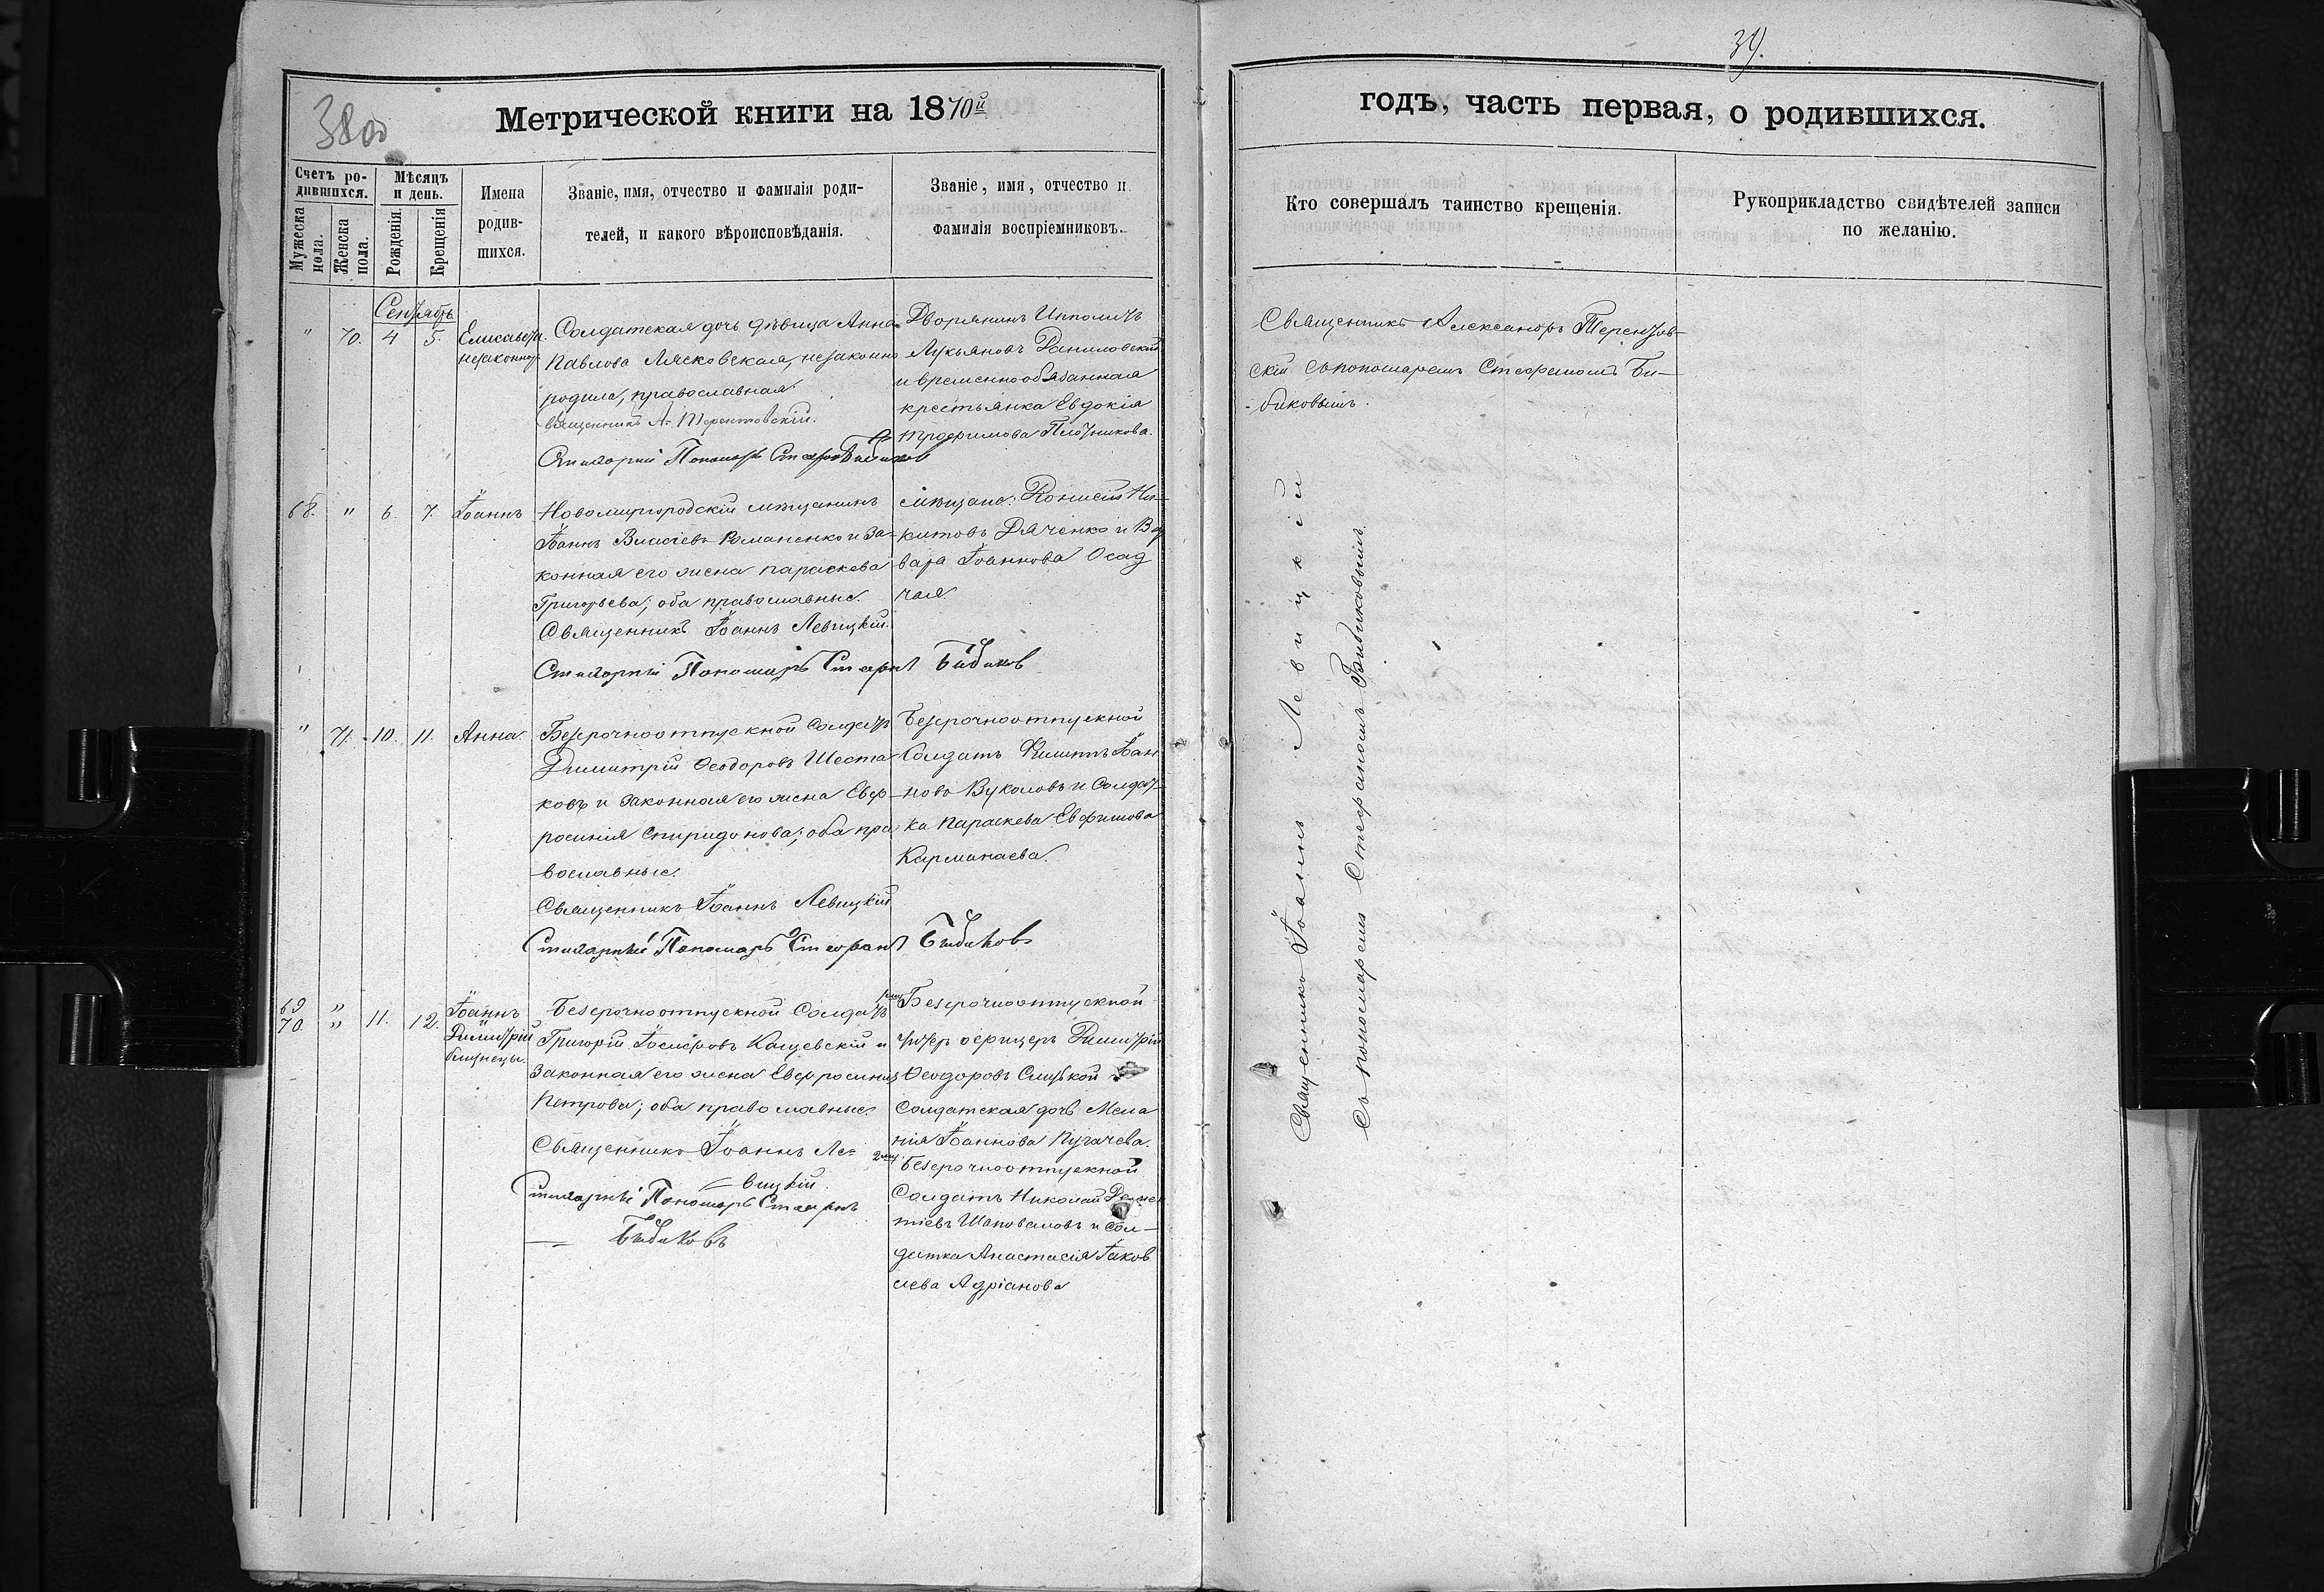 380
Метрической книги на 1870й
Счетъ ро-
дившихся.
Мѣсяцъ
и день.
Мужеска
пола.
Женска
пола.
Рожденія.
Крещенія
Имена
родив-
шихся.
Званіе, имя, отчество и фамилія роди-
телей, и какого вѣроисповѣданія.
Званіе, имя, отчество и
фамилія воспріемниковъ.
Сентябрь
" 70. 4 5.
Елисавета
незаконнор.
Солдатская дочь дѣвица Анна
Павлова Лясковская, незаконно
родила, православная.
Священникъ А. Терентовскій.
Стихарный Пономарь Стефанъ Бибиковъ
Дворянинъ Ипполитъ
Лукьяновъ Даниловскій
и временнообязанная
крестьянка Евдокія
Трофимова Плотникова.
68. " 6. 7. Іоаннъ
Новомиргородскій мѣщанинъ
Іоаннъ Романенко и за-
конная его жена Параскева
Григорьева; оба православные.
Священникъ Іоаннъ Левицкій.
Стихарный Пономарь Стефанъ Бибиковъ
мѣщане: Ни-
китовъ Дяченко и Вар
вара Іоаннова Осад
чая.
" 71. 10. 11. Анна.
Безсрочноотпускной Солдатъ
Димитрій Ѳеодоровъ Шеста
ковъ и законная его жена Евф-
росинія Спиридонова; оба пра
вославные.
Священникъ Іоаннъ Левицкій
Стихарный Пономарь Стефанъ Бибиковъ
Безсрочноотпускной
Солдатъ Филиппъ Іоан
новъ Вуколовъ и Солдат-
ка Параскева Евфимова
Карманаева.
69 "
70. " 11. 12.
Іоаннъ
Димитрій
близнецы.
Безсрочноотпускной Солдатъ
Григорій Іосифовъ Кащевскій и
законная его жена Евфросинія
Петрова; оба православные
Священникъ Іоаннъ Ле=
=вицкій.
Стихарный Пономарь Стефанъ
Бибиковъ
Безсрочноотпускной
унтеръ офицеръ Димитрій
Ѳеодоровъ
Солдатская дочь Мела
нія Іоаннова Пугачева.
Безсрочноотпускной
Солдатъ Николай
Шаповаловъ и Сол-
датка Анастасія Іаков
лева Адріанова
39.
годъ, часть первая, о родившихся.
Кто совершалъ таинство крещенія.
Рукоприкладство свидѣтелей записи
по желанію.
Священникъ Александръ Терентов-
скій съ пономаремъ Стефаномъ Би-
биковымъ.
Священникъ Іоаннъ Левицкій
Съ пономаремъ Стефаномъ Бибиковымъ.